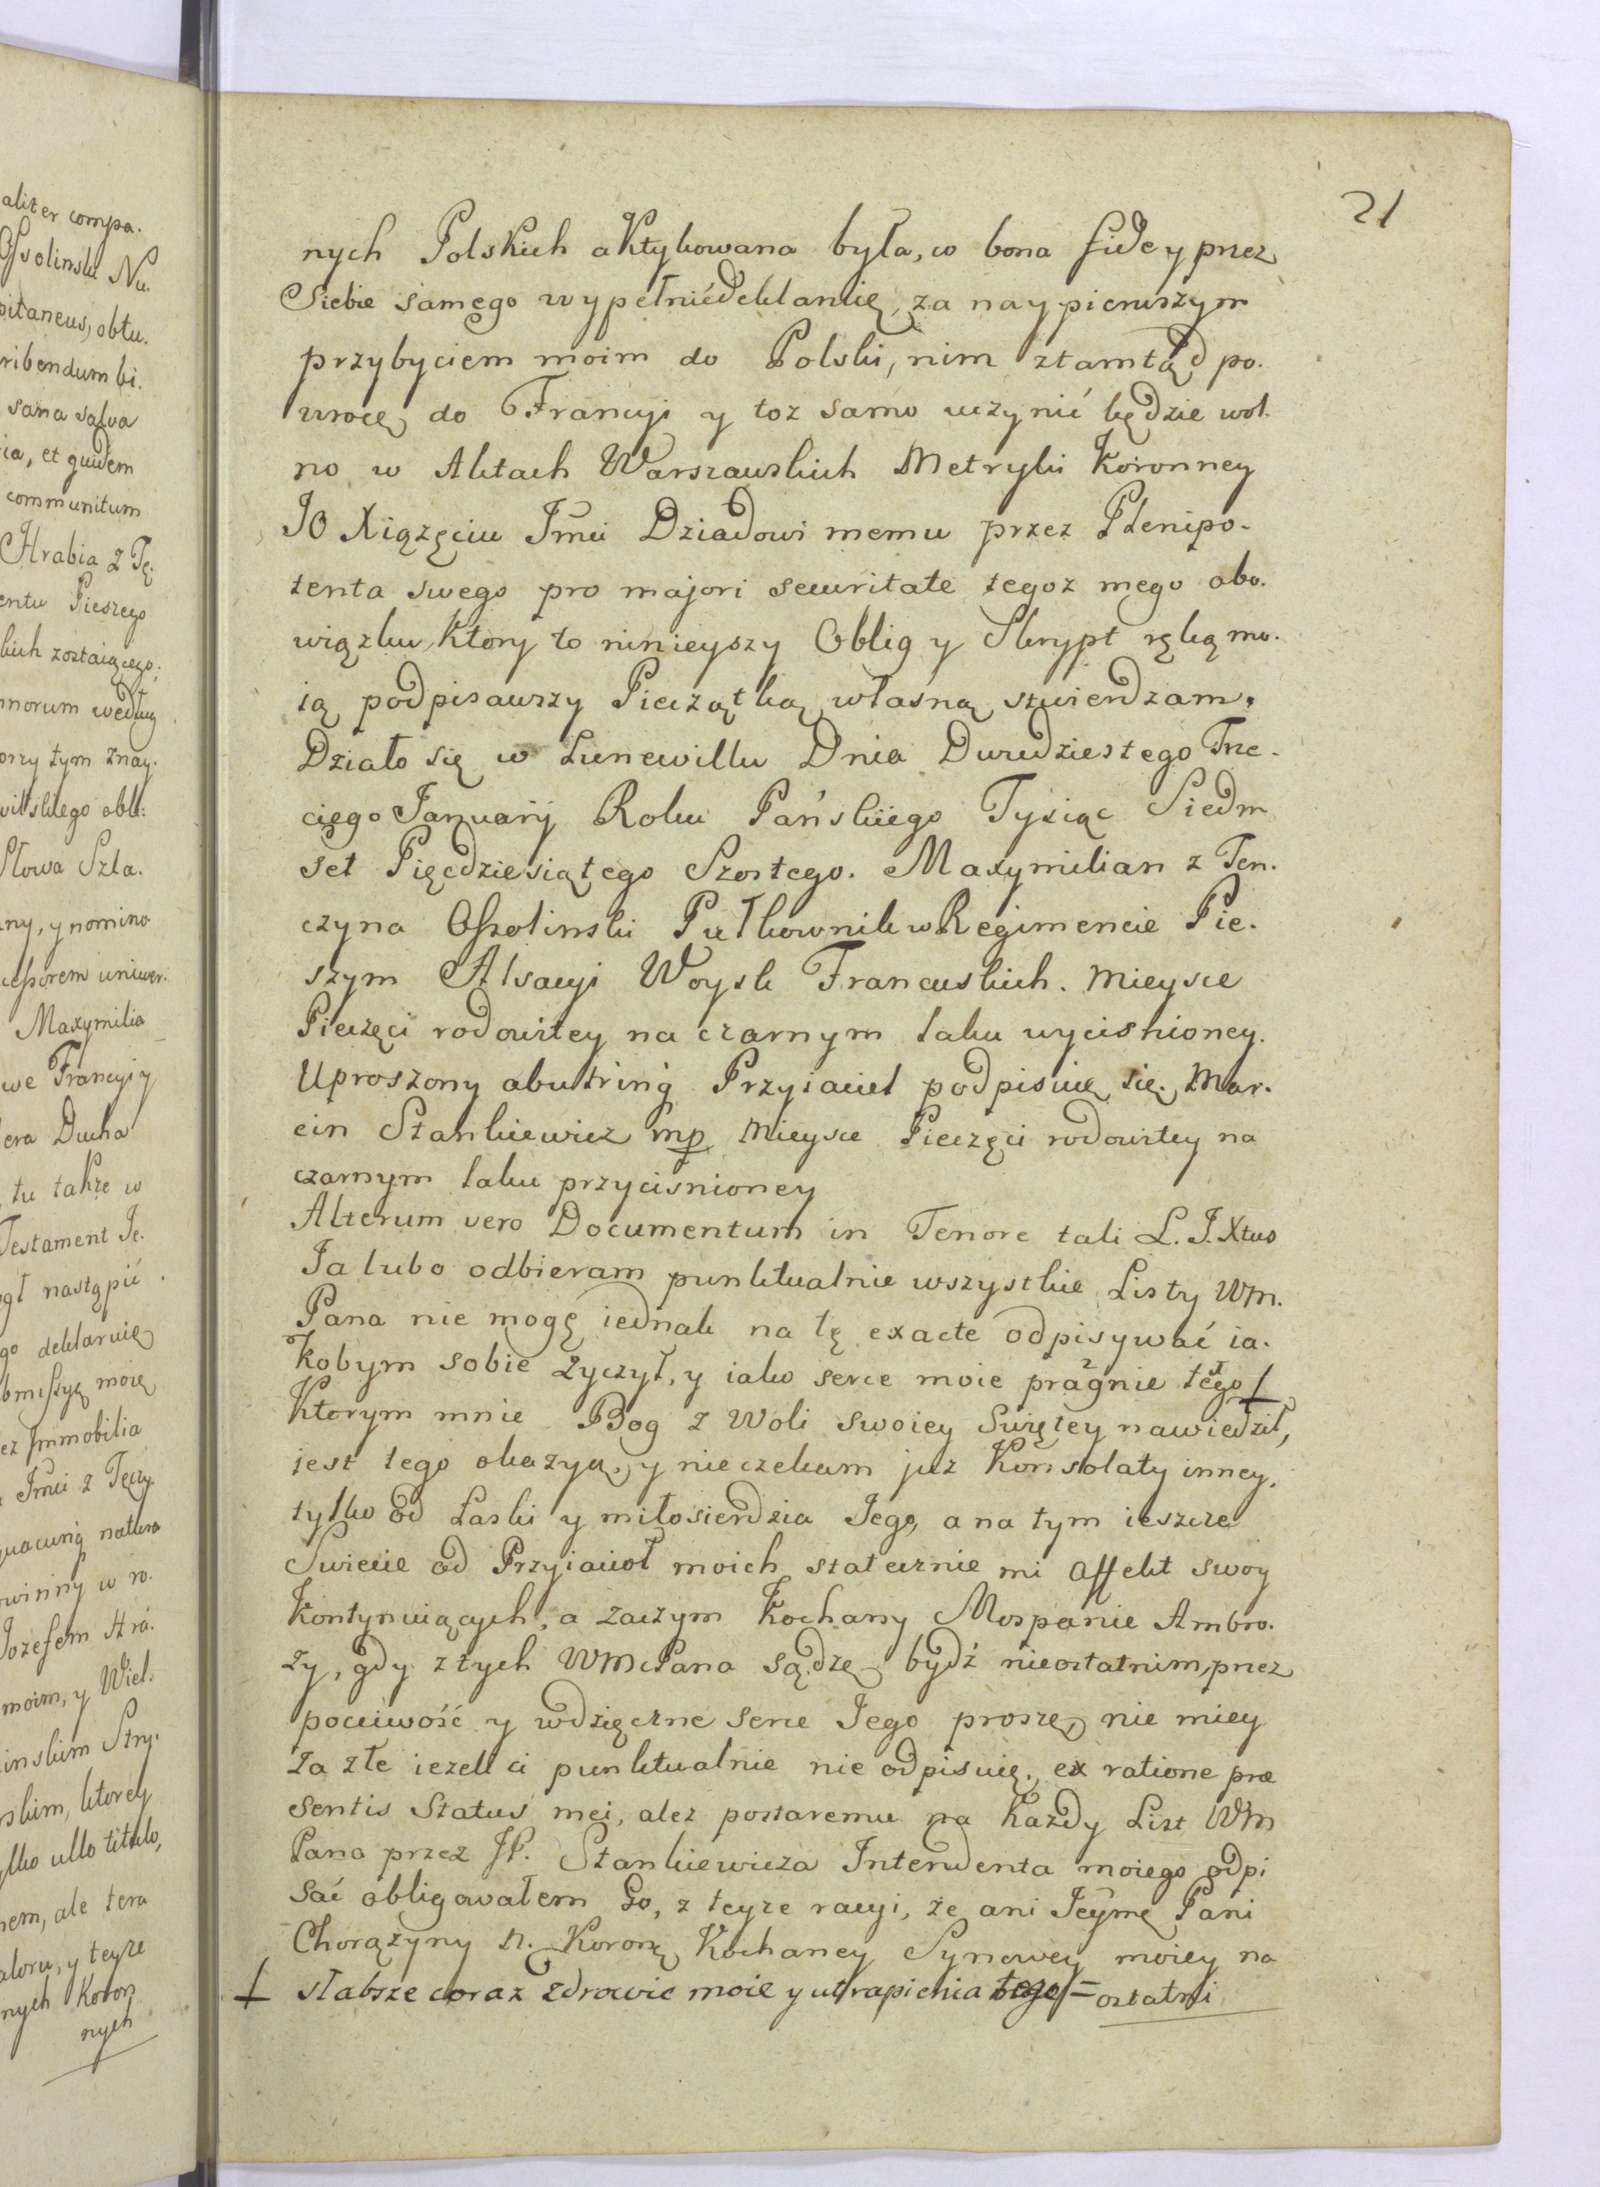 21
aliter compa.
Ossolinski Nu.
pitaneus, obtu.
ribendum bi.
sana salva
ria, et quidem
communitum
Hrabia z Tę.
entu Pieszego
kich zostaiącego.
nnorum według
przy tym znay.
witskiego obli.
Słowa Szla.
zny, y nomino
cessorem univer.
Maxymilia
we Francyi y
era Ducha
tu także w
Testament Je.
ogł nastąpić
go deklaruię
bmissyę moię
ez Immobilia
Jmci z Tęczy
natura
winny w ro.
Jozefem Hra.
moim, y Wiel.
inskim Stry.
rskim, ktorey
ylko ullo titulo,
nem, ale tera
aloru, y teyze
nych Koron
nych
nych Polskich aktykowana była, co bona fide y przez
Siebie samego wypełnić deklaruię, za naypierwszym
przybyciem moim do Polski, nim ztamtąd po.
wrocę do Francyi y toz samo uczynić będzie wol.
no w Aktach Warszawskich Metryki Koronney
JO Xiążęciu Jmci Dziadowi memu przez Plenipo.
tenta swego pro majori securitate tegoz mego obo.
wiązku, ktory to ninieyszy Oblig y Skrypt ręką mo.
ią podpisawszy Pieczątką własną stwierdzam.
Działo się w Lunewillu Dnia Dwudziestego Trze.
ciego Januarij Roku Pańskiego Tysiąc Siedm
set Pięćdziesiątego Szostego. Maxymilian z Ten.
czyna Ossolinski Pułkownik w Regimencie Pie.
szym Alsacyi Woysk Francuskich. Mieysce
Pieczęci rodowitey na czarnym laku wycisnioney.
Uproszony ab utrinq Przyiaciel podpisuię się. Mar.
cin Stankiewicz mp Mieysce Pieczęci rodowitey na
czarnym laku przycisnioney
Alterum vero Documentum in Tenore tali L. J. Xtus
Ja lubo odbieram punktualnie wszystkie Listy WM.
Pana nie mogę iednak na tę exacte odpisywać ia.
kobym sobie zyczył, y iako serce moie pragnie tego ƚ
Ktorym mnie Bog z Woli swoiey Swiętey nawiedził,
jest tego okazyą, y nie czekam juz Konsolaty inney,
tylko od Łaski y miłosierdzia Jego, a na tym ieszcze
Swiecie od Przyiacioł moich statecznie mi affekt swoy
Kontynuiących, a zaczym Kochany Mospanie Ambro.
zy, gdy z tych WMcPana sądzę bydź nieostatnim, przez
pociwość y wdzięczne serce Jego proszę, nie miey
za złe iezeli ci punktualnie nie odpisuię, ex ratione præ
sentis Status mei, alez postaremu na każdy List WM
Pana przez JP. Stankiewicza Intendenta moiego odpi
sać obligowałem go, z teyze racyi, że ani Jeymę Pani
Chorązyny N. Koronę Kochaney Synowey moiey na
ƚ słabsze coraz zdrowie moie y utrapienia tego = ostatni